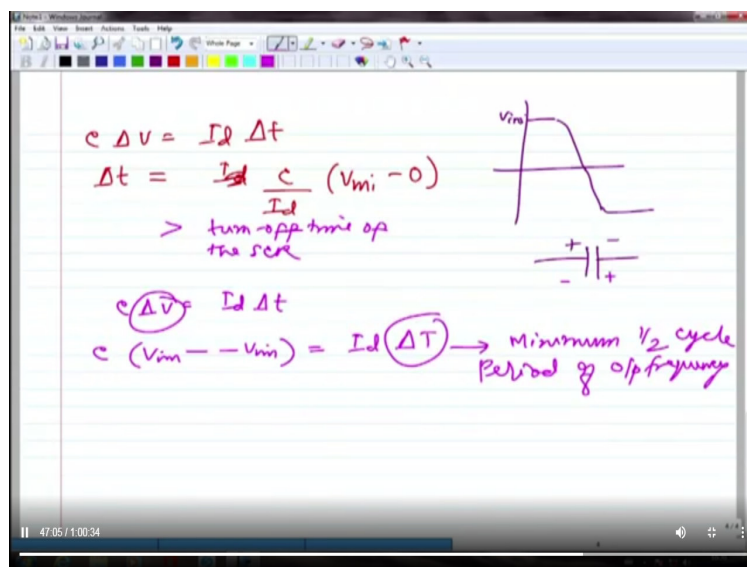 Note1 - Windows Journal
File Edit View Insert Actions Tools Help
Whole Page
B I
C ΔV = Id Δt
Δt = Id C/Id (Vmi - 0)
> turn-opp time op
the SCR
C ΔV = Id Δt
C (Vim - - Vim) = Id ΔT → Minimum 1/2 cycle
Period of o/p frequency
Vim
+ -
- +
47:05 / 1:00:34